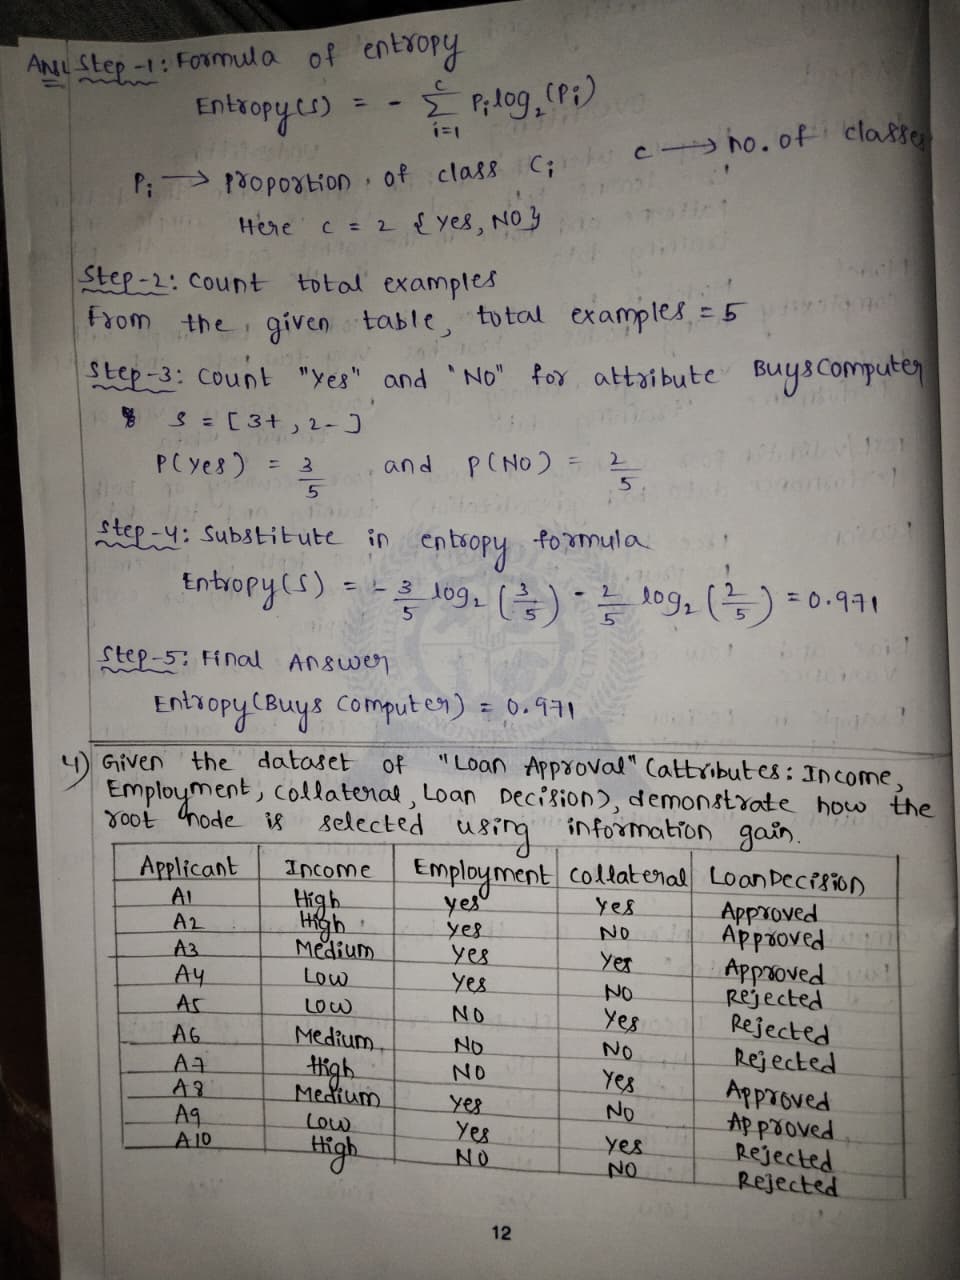 Ans Step-1: Formula of entropy
Entropy(s) = - Σ Pi log2 (Pi)
c
i=1
Pi → proportion of class Ci c → no. of classes
Here c = 2 {Yes, NO}
Step-2: Count total examples
From the given table, total examples = 5
Step-3: Count "Yes" and "NO" for attribute Buys Computer
S = [3+, 2-]
P(Yes) = 3/5 and P(NO) = 2/5
Step-4: Substitute in entropy formula
Entropy(S) = - 3/5 log2 (3/5) - 2/5 log2 (2/5) = 0.971
Step-5: Final Answer
Entropy(Buys Computer) = 0.971
4) Given the dataset of "Loan Approval" (attributes: Income,
Employment, Collateral, Loan Decision), demonstrate how the
root node is selected using information gain.
Applicant Income Employment Collateral Loan Decision
A1 High Yes Yes Approved
A2 High Yes NO Approved
A3 Medium Yes Yes Approved
A4 Low Yes NO Rejected
A5 Low NO Yes Rejected
A6 Medium NO NO Rejected
A7 High NO Yes Approved
A8 Medium Yes NO Approved
A9 Low Yes Yes Rejected
A10 High NO NO Rejected
12